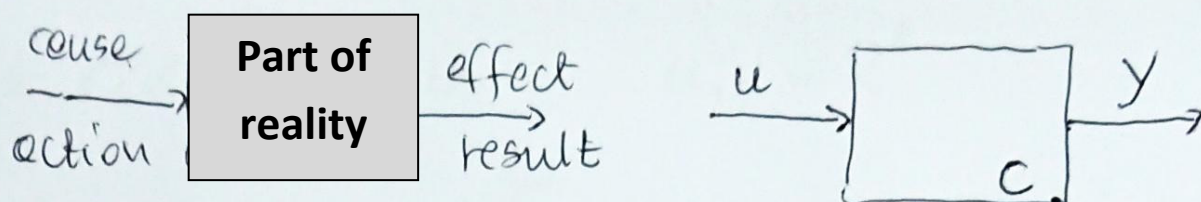 cause
action
Part of
reality
effect
result
u
y
C